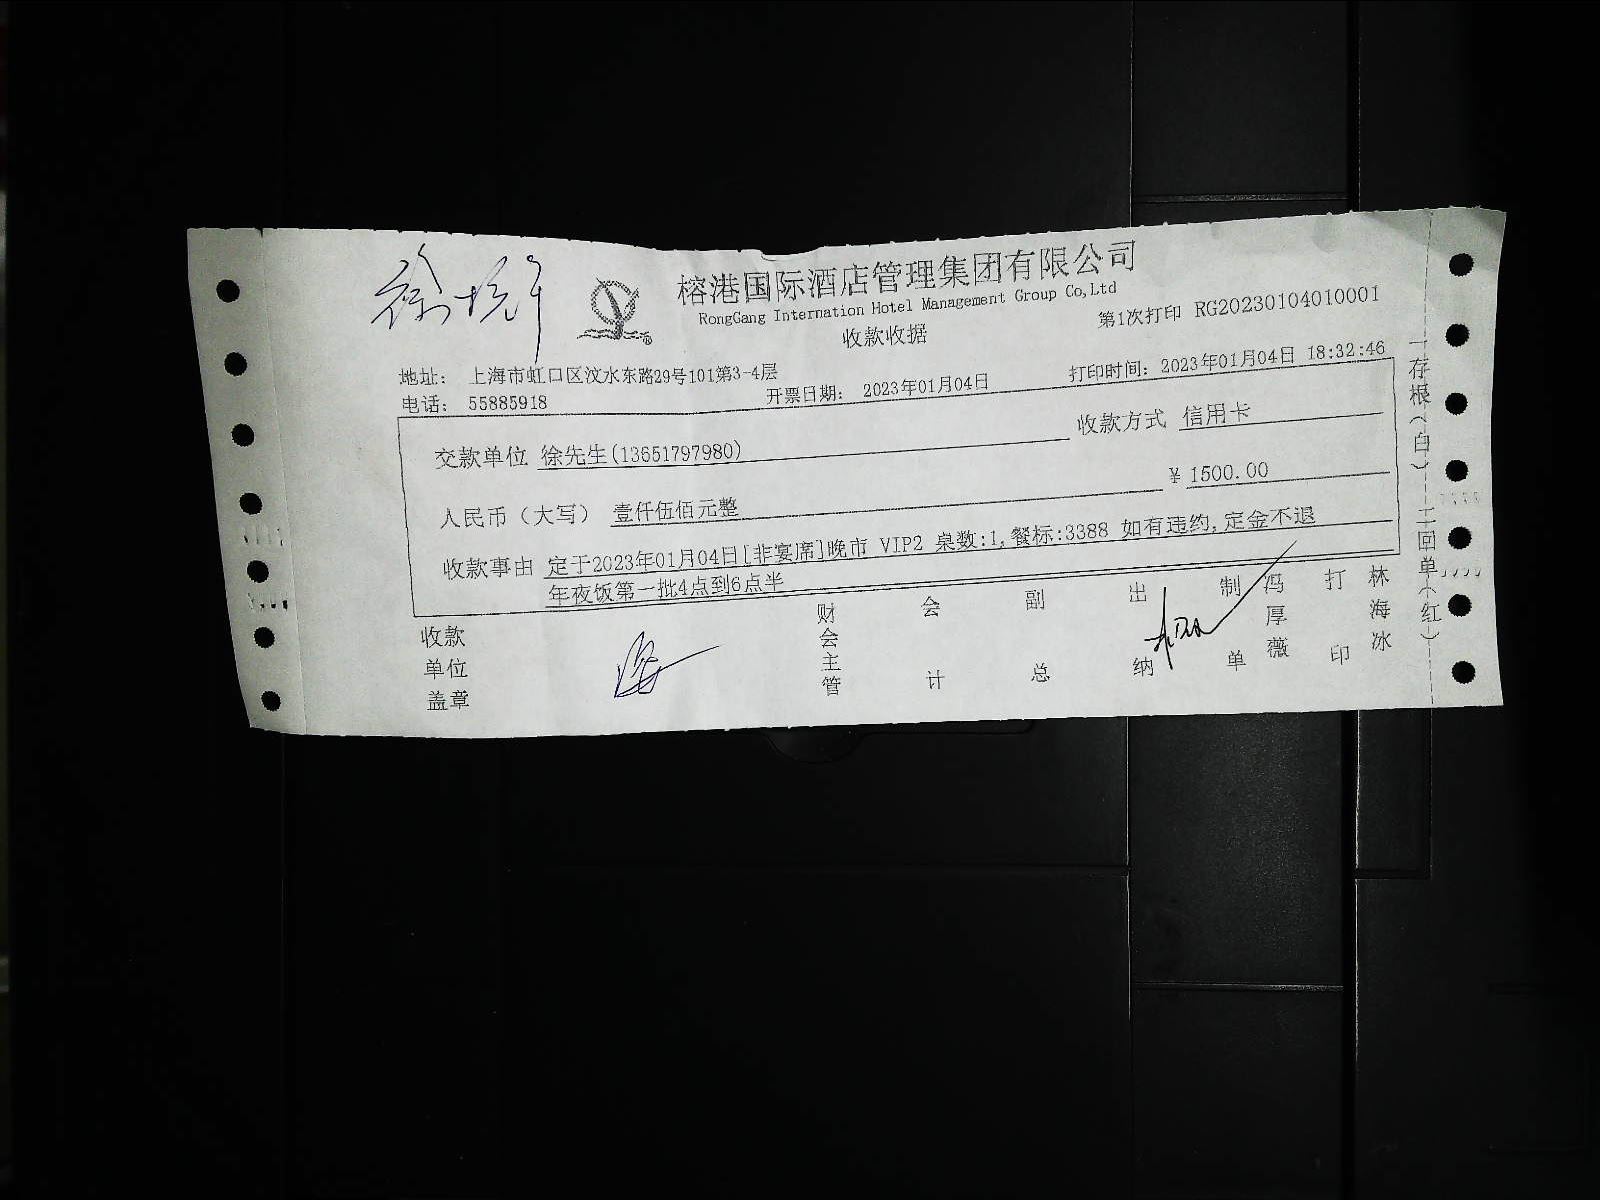 榕港国际酒店管理集团有限公司
RongGang Internation Hotel Management Group Co,Ltd
收款收据
第1次打印 RG20230104010001
地址： 上海市虹口区汶水东路29号101第3-4层
电话： 55885918
开票日期： 2023年01月04日
打印时间：2023年01月04日 18:32:46
交款单位 徐先生(13651797980)
收款方式 信用卡
人民币（大写） 壹仟伍佰元整
¥ 1500.00
收款事由 定于2023年01月04日[非宴席]晚市 VIP2 桌数:1,餐标:3388 如有违约,定金不退
年夜饭第一批4点到6点半
收款单位盖章
财会主管
会计
副总
出纳
制单
冯厚薇
打印
林海冰
一存根（白） 二回单（红）